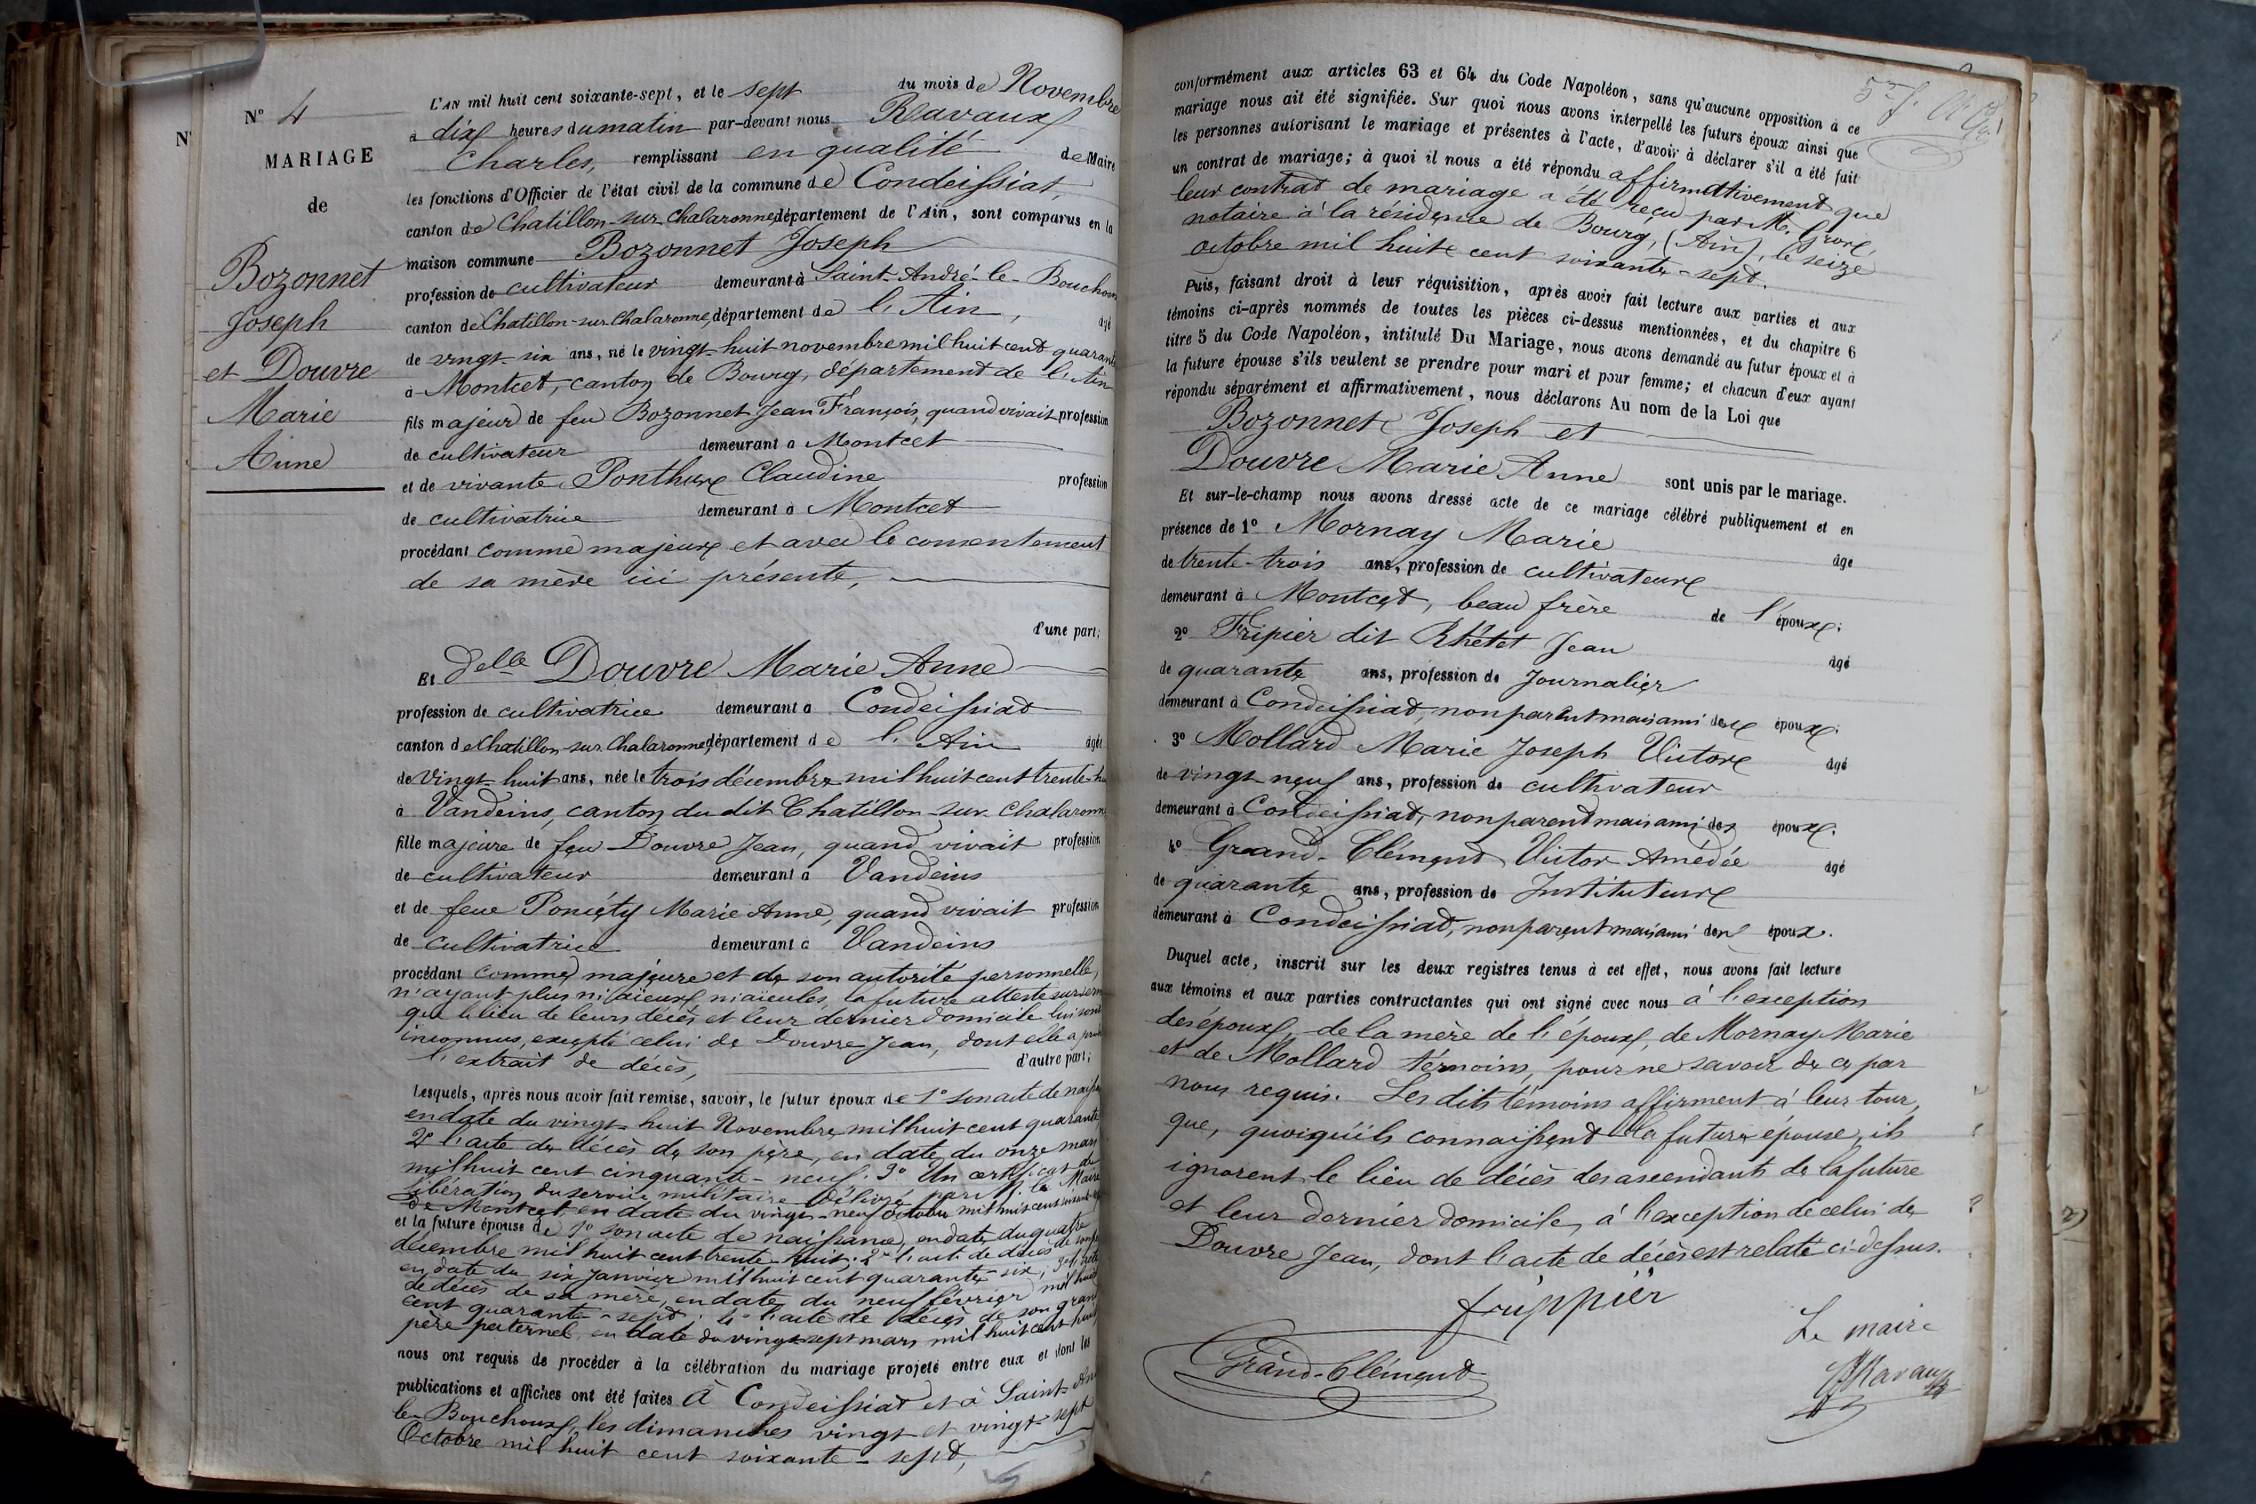 N° 4
MARIAGE
de
Bozonnet
Joseph
et Douvre
Marie
Anne
L'AN mil huit cent soixante-sept, et le sept du mois de Novembre
à dix heures du matin par-devant nous Ravaux
Charles, remplissant en qualité de Maire
les fonctions d'Officier de l'état civil de la commune de Condeissiat,
canton de Chatillon-sur-Chalaronne, département de l'Ain, sont comparus en la
maison commune Bozonnet Joseph
profession de cultivateur demeurant à Saint-André-le-Bouchoux
canton de Chatillon-sur-Chalaronne, département de l'Ain, âgé
de vingt-six ans, né le vingt-huit novembre mil huit cent quarante
à Montcet, canton de Bourg, département de l'Ain
fils majeur de feu Bozonnet Jean François, quand vivait profession
de cultivateur demeurant à Montcet
et de vivante Ponthux Claudine profession
de cultivatrice demeurant à Montcet
procédant comme majeur et avec le consentement
de sa mère ici présente,
d'une part;
Et delle Douvre Marie Anne
profession de cultivatrice demeurant à Condeissiat
canton de Chatillon-sur-Chalaronne, département de l'Ain âgée
de vingt-huit ans, née le trois décembre mil huit cent trente-hu
à Vandeins, canton du dit Chatillon-sur-Chalaronne
fille majeure de feu Douvre Jean, quand vivait profession
de cultivateur demeurant à Vandeins
et de feue Poncéty Marie Anne, quand vivait profession
de cultivatrice demeurant à Vandeins
procédant comme majeure et de son autorité personnelle,
n'ayant plus ni aïeux ni aïeules, la future atteste sur serm
que le lieu de leurs décès et leur dernier domicile lui sont
inconnus, excepté celui de Douvre Jean, dont elle a produ
l'extrait de décès, d'autre part;
Lesquels, après nous avoir fait remise, savoir, le futur époux de 1° son acte de naiss
en date du vingt-huit Novembre mil huit cent quarante
2° l'acte de décès de son père, en date du onze mars
mil huit cent cinquante-neuf. 3° Un certificat de
libération du service militaire délivré par M. le Maire
de Montcet, en date du vingt-neuf octobre mil huit cent soixante-sept
et la future épouse de 1° son acte de naissance, en date du quatre
décembre mil huit cent trente-huit; 2° l'acte de décès de son père
en date du six janvier mil huit cent quarante-six; 3° l'acte
de décès de sa mère, en date du neuf février mil huit
cent quarante-sept; 4° l'acte de décès de son grand
père paternel en date du vingt-sept mars mil huit cent huit
nous ont requis de procéder à la célébration du mariage projeté entre eux et dont les
publications et affiches ont été faites à Condeissiat et à Saint-An
le-Bouchoux, les dimanches vingt et vingt-sept
Octobre mil huit cent soixante-sept,
conformément aux articles 63 et 64 du Code Napoléon, sans qu'aucune opposition à ce
mariage nous ait été signifiée. Sur quoi nous avons interpellé les futurs époux ainsi que
les personnes autorisant le mariage et présentes à l'acte, d'avoir à déclarer s'il a été fait
un contrat de mariage; à quoi il nous a été répondu affirmativement que
leur contrat de mariage a été reçu par M.
notaire à la résidence de Bourg, (Ain), le seize
octobre mil huit cent soixante-sept.
Puis, faisant droit à leur réquisition, après avoir fait lecture aux parties et aux
témoins ci-après nommés de toutes les pièces ci-dessus mentionnées, et du chapitre 6
titre 5 du Code Napoléon, intitulé Du Mariage, nous avons demandé au futur époux et à
la future épouse s'ils veulent se prendre pour mari et pour femme; et chacun d'eux ayant
répondu séparément et affirmativement, nous déclarons Au nom de la Loi que
Bozonnet Joseph et
Douvre Marie Anne sont unis par le mariage.
Et sur-le-champ nous avons dressé acte de ce mariage célébré publiquement et en
présence de 1° Mornay Marie âgé
de trente-trois ans, profession de cultivateur
demeurant à Montcet, beau frère de l'époux;
2° Fripier dit Rhétet Jean âgé
de quarante ans, profession de Journalier
demeurant à Condeissiat, non parent mais ami des époux;
3° Mollard Marie Joseph Victor âgé
de vingt neuf ans, profession de cultivateur
demeurant à Condeissiat, non parent mais ami des époux;
4° Grand-Clément Victor Amédée âgé
de quarante ans, profession de Instituteur
demeurant à Condeissiat, non parent mais ami des époux.
Duquel acte, inscrit sur les deux registres tenus à cet effet, nous avons fait lecture
aux témoins et aux parties contractantes qui ont signé avec nous à l'exception
des époux, de la mère de l'époux, de Mornay Marie
et de Mollard témoins, pour ne savoir de ce par
nous requis. Les dits témoins affirment à leur tour,
que, quoiqu'ils connaissent la future épouse, ils
ignorent le lieu de décès des ascendants de la future
et leur dernier domicile, à l'exception de celui de
Douvre Jean, dont l'acte de décès est relaté ci-dessus.
frippier
Le maire
Grand-Clément
Ravaux